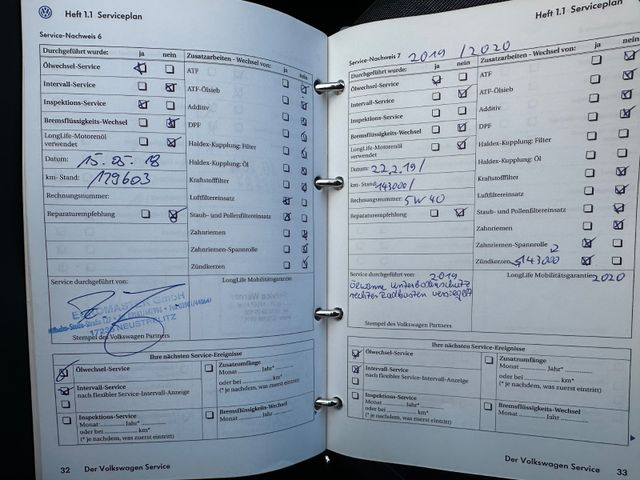 Heft 1.1 Serviceplan
Service-Nachweis 6
Durchgeführt wurde: ja nein Zusatzarbeiten - Wechsel von: ja nein
Ölwechsel-Service ATF
Intervall-Service ATF-Ölsieb
Inspektions-Service Additiv
Bremsflüssigkeits-Wechsel DPF
LongLife-Motorenöl
verwendet
Haldex-Kupplung: Filter
Datum: 15.05.18
Haldex-Kupplung: Öl
km-Stand: 129603
Kraftstofffilter
Rechnungsnummer:
Luftfiltereinsatz
Reparaturempfehlung
Staub- und Pollenfiltereinsatz
Zahnriemen
Zahnriemen-Spannrolle
Zündkerzen
Service durchgeführt von:
LongLife Mobilitätsgarantie
GmbH
NEUSTRELITZ
Stempel des Volkswagen Partners
Ihre nächsten Service-Ereignisse
Ölwechsel-Service
Zusatzumfänge
Monat Jahr*
oder bei km*
(* je nachdem, was zuerst eintritt)
Intervall-Service
nach flexibler Service-Intervall-Anzeige
Inspektions-Service
Monat Jahr*
oder bei km*
(* je nachdem, was zuerst eintritt)
Bremsflüssigkeits-Wechsel
Monat Jahr
32 Der Volkswagen Service
Heft 1.1 Serviceplan
Service-Nachweis 7 2019 / 2020
Durchgeführt wurde: ja nein Zusatzarbeiten - Wechsel von: ja nein
Ölwechsel-Service ATF
Intervall-Service ATF-Ölsieb
Inspektions-Service Additiv
Bremsflüssigkeits-Wechsel DPF
LongLife-Motorenöl
verwendet
Haldex-Kupplung: Filter
Datum: 22.2.19/
Haldex-Kupplung: Öl
km-Stand: 143000/
Kraftstofffilter
Rechnungsnummer: 5W40
Luftfiltereinsatz
Reparaturempfehlung
Staub- und Pollenfiltereinsatz
Zahnriemen
Zahnriemen-Spannrolle
Zündkerzen 143000
Service durchgeführt von: 2019
LongLife Mobilitätsgarantie 2020
Ölwanne Unterbodenschutz
rechter Radkasten versiegelt
Stempel des Volkswagen Partners
Ihre nächsten Service-Ereignisse
Ölwechsel-Service
Zusatzumfänge
Monat Jahr*
oder bei km*
(* je nachdem, was zuerst eintritt)
Intervall-Service
nach flexibler Service-Intervall-Anzeige
Inspektions-Service
Monat Jahr*
oder bei km*
(* je nachdem, was zuerst eintritt)
Bremsflüssigkeits-Wechsel
Monat Jahr
Der Volkswagen Service 33